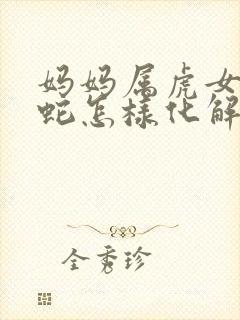 妈妈属虎女
蛇怎样化解
全秀珍